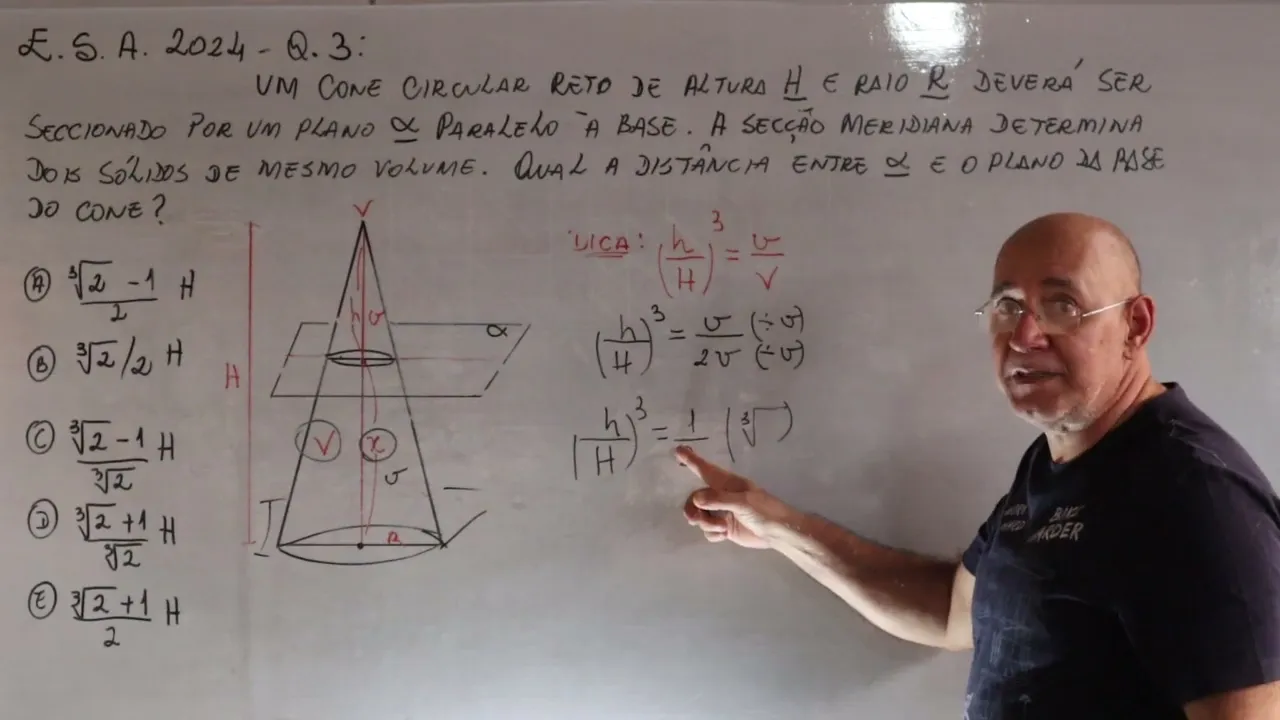 E. S. A. 2024 - Q. 3:
UM CONE CIRCULAR RETO DE ALTURA H E RAIO R DEVERÁ SER
SECCIONADO POR UM PLANO α PARALELO À BASE. A SECÇÃO MERIDIANA DETERMINA
DOIS SÓLIDOS DE MESMO VOLUME. QUAL A DISTÂNCIA ENTRE α E O PLANO DA BASE
DO CONE?
A) (∛2 - 1)/2 H
B) ∛2/2 H
C) (∛2 - 1)/∛2 H
D) (∛2 + 1)/∛2 H
E) (∛2 + 1)/2 H
V
h v
α
H
V x
v
R
DICA: (h/H)³ = v/V
(h/H)³ = v/2v (÷v) (÷v)
(h/H)³ = 1/ (∛ )
HARDER